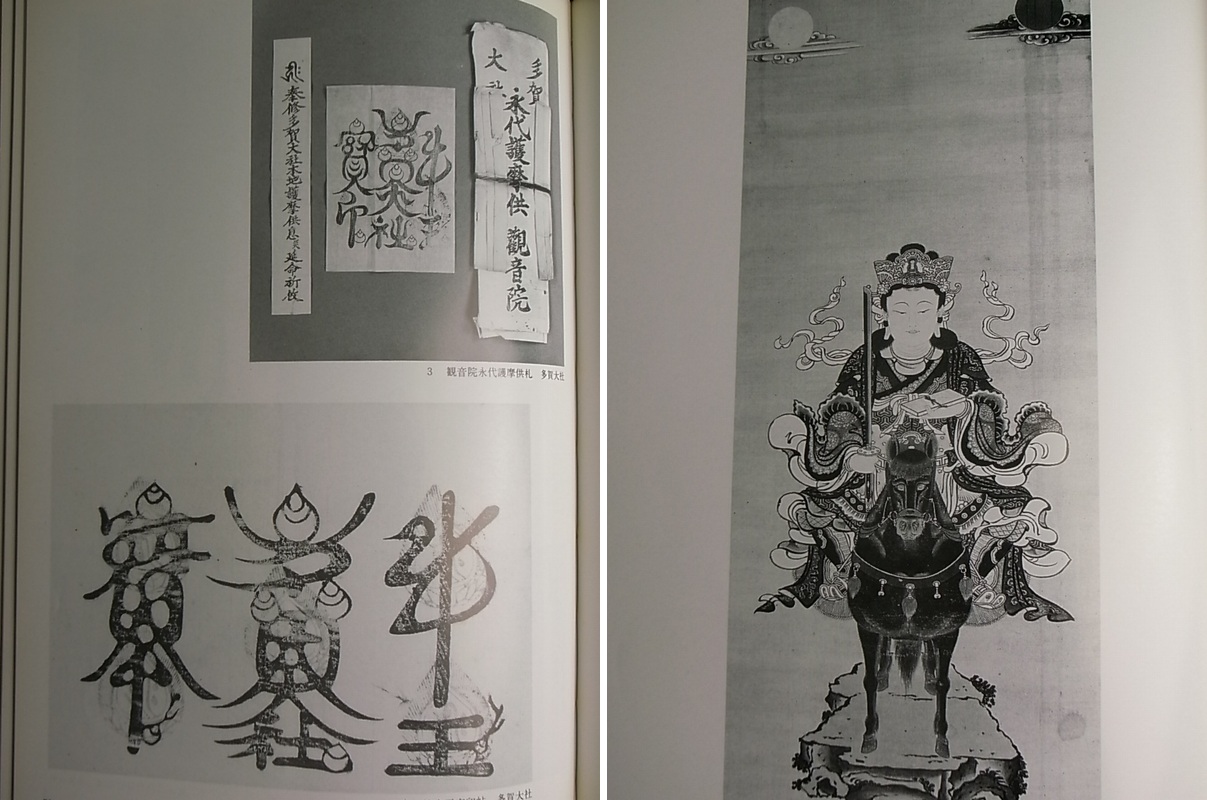 多賀
大社
永代護摩供 觀音院
牛王
寶印
奉修多賀大社本地護摩供息災延命祈攸
3 観音院永代護摩供札 多賀大社
牛王
多賀大社